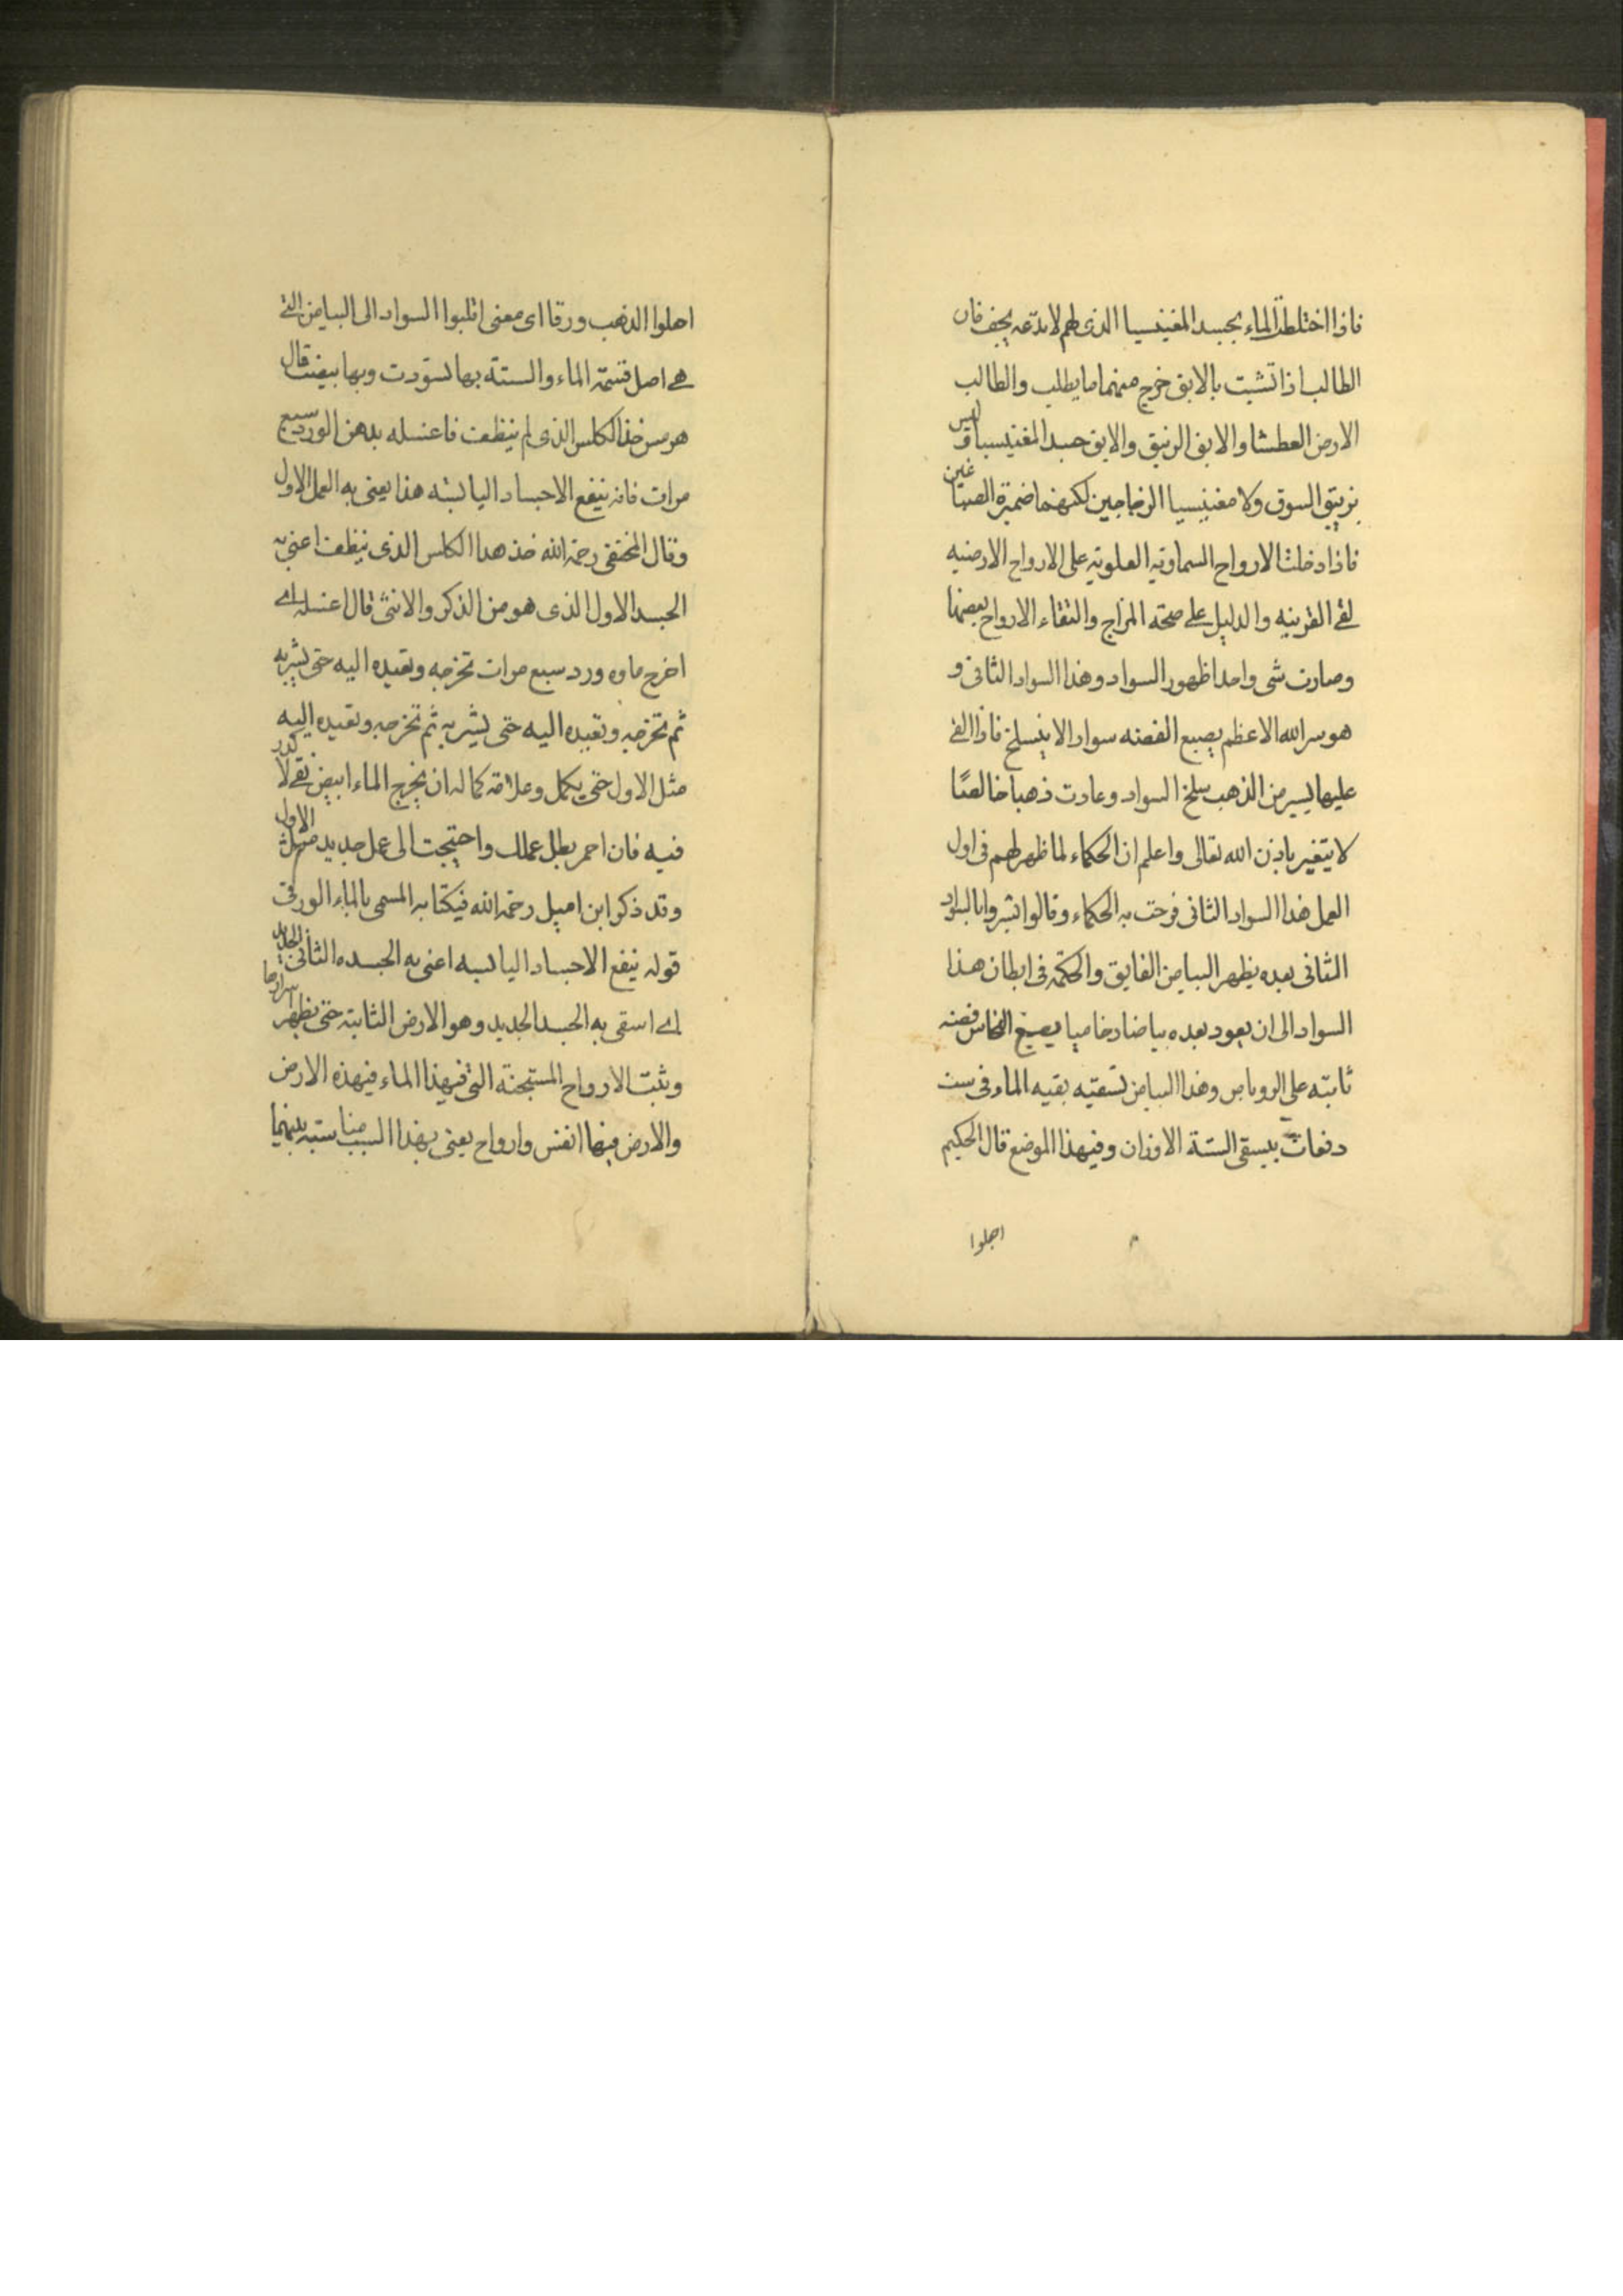 فاذا اختلط الماء بجسد المغنيسيا الذى لهم لا تدعه يجف فان
الطالب اذا تشبث بالابق خرج منهما ما يطلب والطالب
الارض العطشا والابق الزيبق والابق جسد المغنيسيا وليس
بزيبق السوق ولا مغنيسيا الزجاجين لكنهما ضميرة الصباغين
فاذا دخلت الارواح السماويه العلويه على الارواح الارضيه
لقى القرينه والدليل على صحة المزاج والتقاء الارواح بعضها
وصارت شى واحدا ظهور السواد وهذا السواد الثانى و
هو سر الله الاعظم يصبع الفضه سوادا لا ينسلخ فاذا القى
عليها يسير من الذهب سلخ السواد وعادت ذهبا خالصًا
لا يتغير باذن الله تعالى واعلم ان الحكماء لما ظهر لهم فى اول
العمل هذا السواد الثانى فرحت به الحكماء وقالوا ابشروا بالسواد
الثانى بعده يظهر البياض الفايق والحكمه فى ابطان هذا
السواد الى ان يعود بعده بياضا رخاميا يصبغ النحاس فضه
ثابته على الروباص وهذا البياض تسقيه بقيه الماء فى ست
دفعات بيسقى الستة الاوزان وفيهذا الموضع قال الحكيم
اجلوا
احلوا الذهب ورقا اى معنى اقلبوا السواد الى البياض التى
هى اصل قسمة الماء والستة بها تسوّدت وبها بيضت قال
هرمس خذ الكلس الذى لم ينظف فاغسله بدهن الورد سبع
مرات فانه ينفع الاجساد اليابسه هذا يعنى به العمل الاول
وقال المحنفى رحمه الله خذ هذا الكلس الذى ينظف اعنى به
الجسد الاول الذى هو من الذكر والانثى قال اغسله اى
اخرج ماوه ورد سبع مرات تخرجه وتعيده اليه حتى يشربه
ثم تخرجه وتعيده اليه حتى يشربه ثم تخرجه وتعيده اليه
مثل الاول حتى يكمل وعلامة كماله ان يخرج الماء ابيض نقى لا كدر
فيه فان احمر بطل عملك واحتيجت الى عمل جديد مثل الاول
وقد ذكر ابن اميل رحمه الله فيكتابه المسمى بالماء الورقى
قوله ينفع الاجساد اليابسه اعنى به الجسده الثانى الجديد
اى اسقى به الجسد الجديد وهو الارض الثابته حتى تظهر سرارها
وثبت الارواح المستجنة التى فيهذا الماء فيهذه الارض
والارض فيها انفس وارواح يعنى بهذا السبب مناسبته بينهما